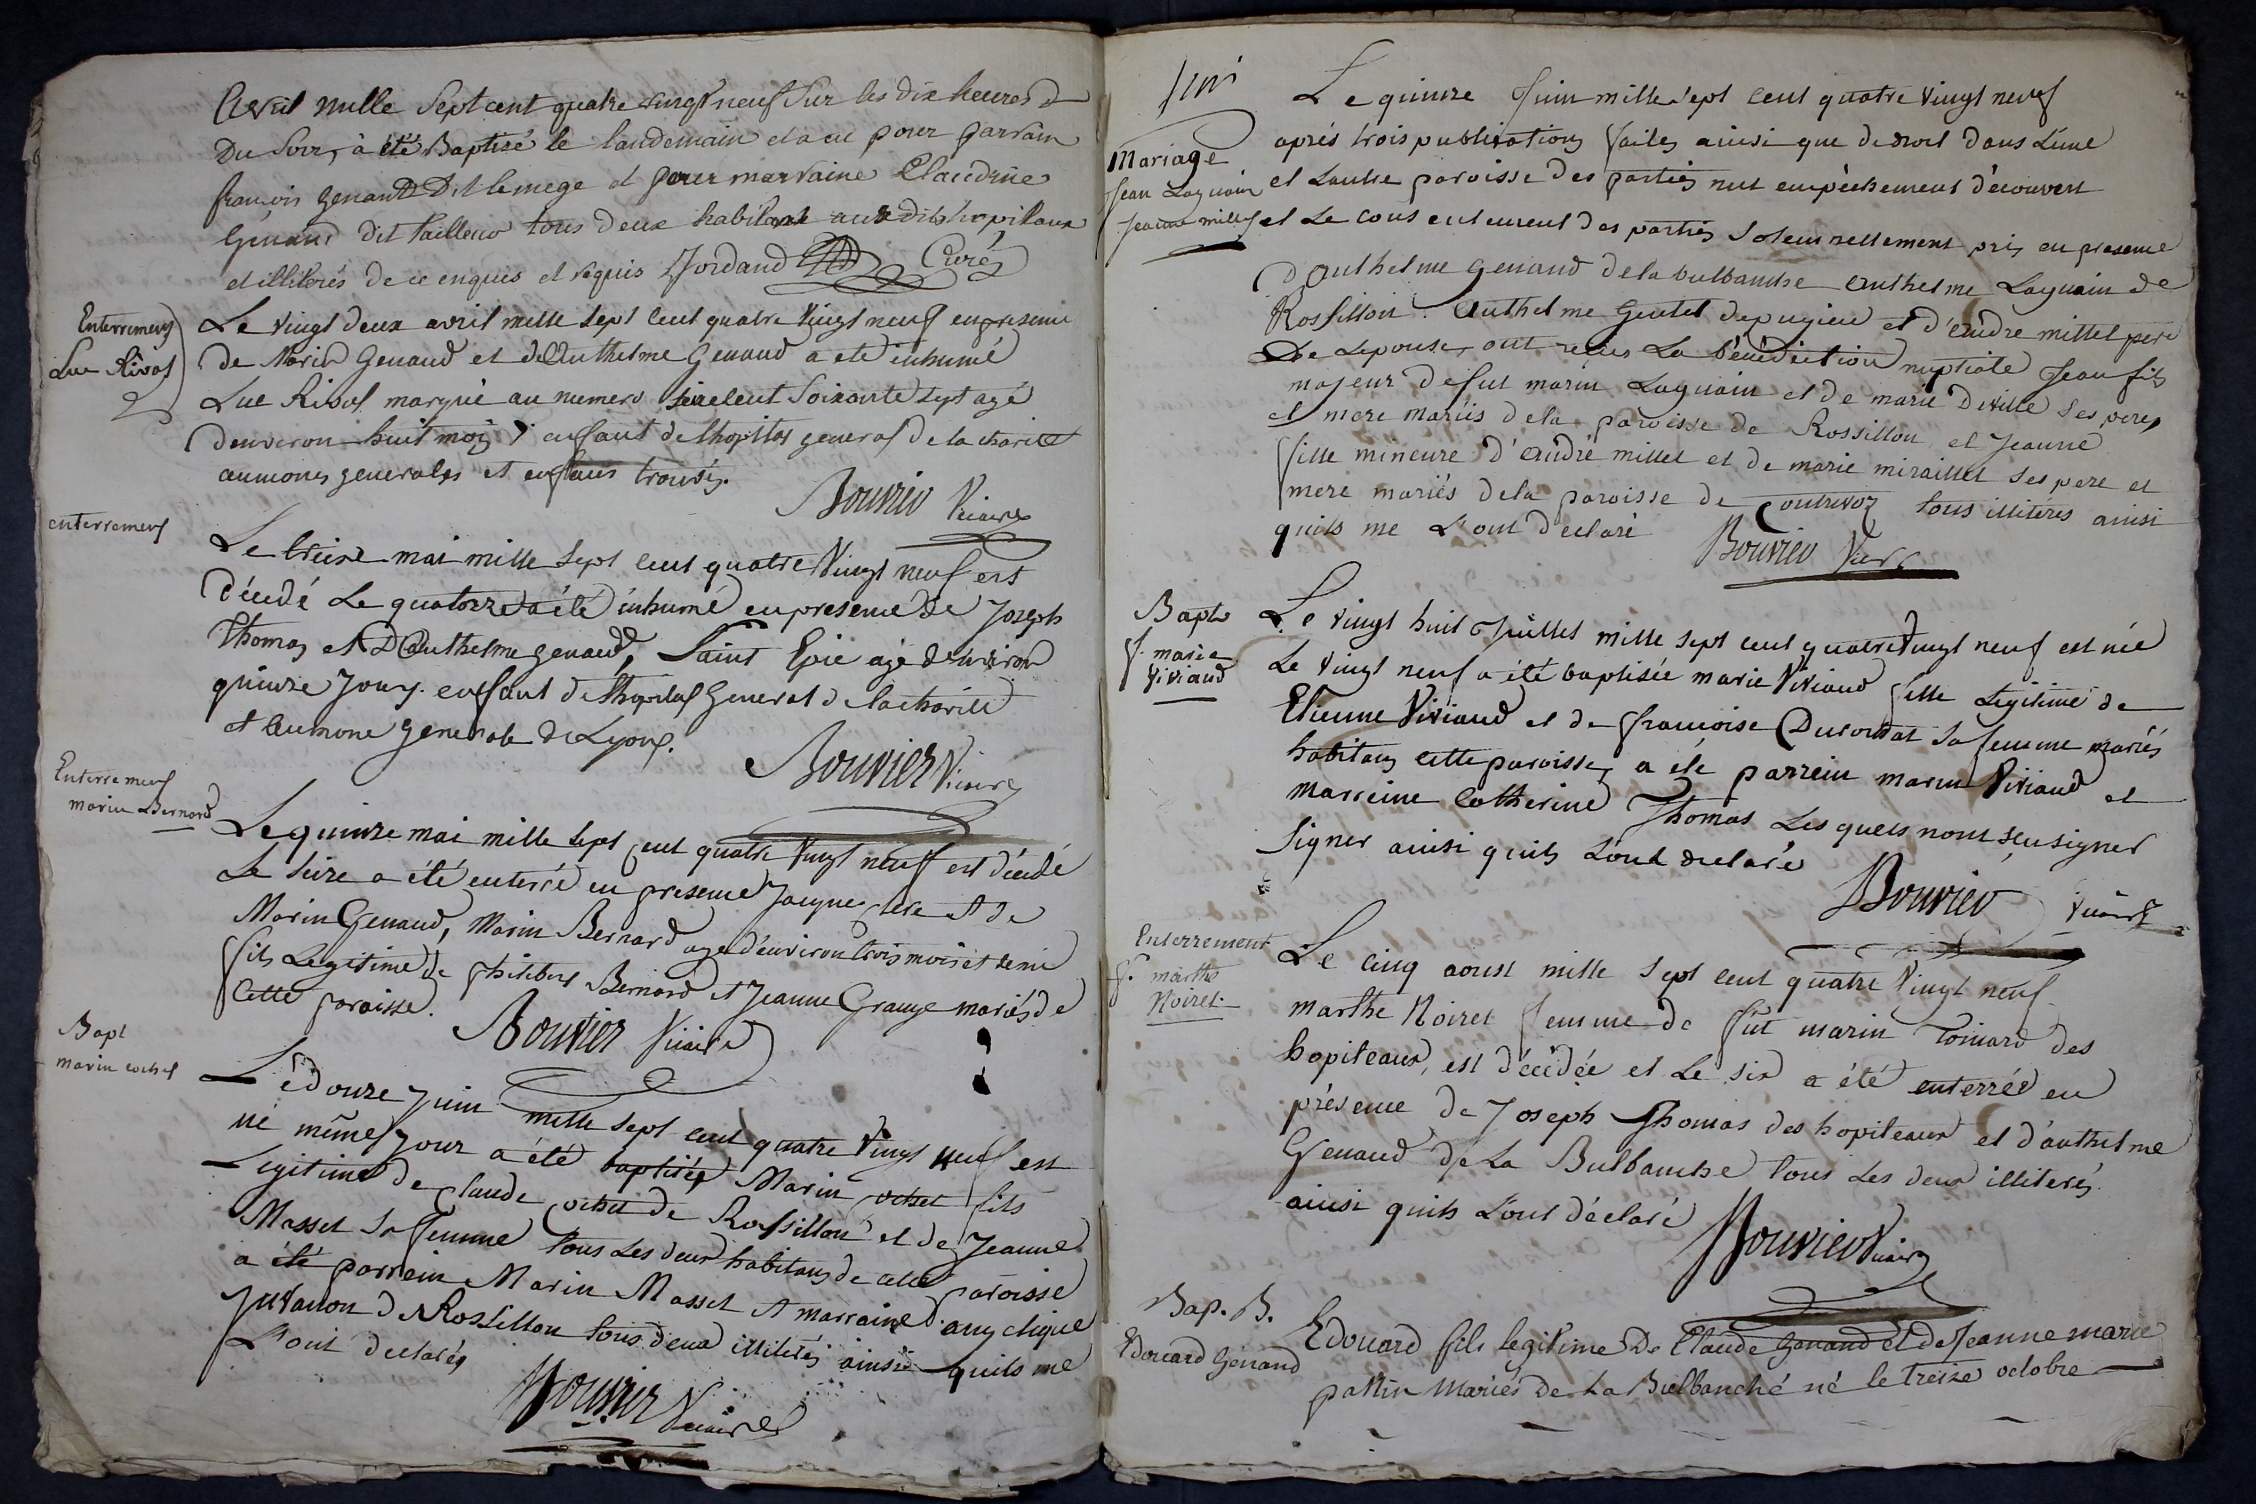 Avril mille Sept cent quatre vingt neuf Sur les dix heures
Du Soir, à été Baptisé le landemain et a eu pour parrain
françois genand Dit lemege et pour marraine Claudine
Génand dit tailleur tous deux habitant auxdits hopitaux
et illiterés de ce enquis et requis Jordand Curé
Enterrement
Luc Rivol
Le vingt deux avril mille sept cent quatre vingt neuf en presence
de Marin Genaud et d'Anthelme Genaud a eté inhumé
Luc Rivol marqué au numero cent soixante sept agé
d'environ huit mois enfant de lhopital general de la charité
aumones generales et enfans trouvés.
Bouvier Vicaire
enterrement
Le treize mai mille sept cent quatre vingt neuf est
décédé Le quatorze a été inhumé en presence de Joseph
Thomas et D'Authelme genaud, Saint Epie agé d'environ
quinze jours enfant de lhopital General de la charité
et aumone generale de Lyon.
Bouvier Vicaire
Enterrement
marin Bernard
Le quinze mai mille sept cent quatre vingt neuf est décédé
Le seize a été enterré en presence Jacque et de
Marin Genaud, Marin Bernard agé d'environ trois mois et demi
fils Legitime de philibert Bernard et Jeanne Grange mariés de
cette paroisse.
Bouvier Vicaire
Bapt
marin cochet
Le douze juin mille sept cent quatre vingt neuf est
né même jour a été baptisé Marin cochet fils
Legitime de Claude Cochet de Rossillon et de Jeanne
Masset sa femme tous les deux habitans de cette paroisse
a été parrein Marin Masset et marraine
Juvanon de Rossillon tous deux illiterés ainsi quils me
L'ont declarés
Bouvier Vicaire
Mariage
Jean Laguain
Jeanne millet
Le quinze Juin mille sept cent quatre vingt neuf
aprés trois publications faites ainsi que de droit dans L'une
et L'autre paroisse des parties nul empêchement découvert
et Le consentement des parties solemnellement pris en presence
d'Authelme Genaud de la bulbanche Authelme Laguain de
Rossillon. Authelme Gentet de pugieu et d'André millet pere
De Lepouse, ont reçus La bénédiction nuptiale Jean fils
majeur de fut marin Laguain et de marie Diville Ses pere
et mere mariés de la paroisse de Rossillon, et Jeanne
fille mineure d'André millet et de marie miraillet ses pere et
mere mariés de la paroisse de Contrevoz tous illiterés ainsi
quils me L'ont déclaré
Bouvier Vicaire
Bapt
f. marie
Viviand
Le vingt huit Juillet mille sept cent quatre vingt neuf est née
Le vingt neuf a été baptisée marie Viviand fille Legitime de
Etienne Viviand et de françoise Ducoudat sa femme mariés
habitans cette paroisse, a été parrein marin Viviand et
marreine Catherine Thomas Les quels n'ont seu signer
Signer ainsi quils L'ont declaré
Bouvier Vicaire
Enterrement
f. marthe
Noiret
Le cinq aoust mille sept cent quatre vingt neuf
marthe Noiret femme de fût marin Toinard des
hopiteaux, est décédée et Le six a été enterrée en
présence de Joseph Thomas des hopiteaux et d'authelme
Genaud de La Bulbanche tous Les deux illiterés
ainsi quils L'ont déclaré
Bouvier Vicaire
Bap. B.
Edouard Génand
Edouard fils legitime De Claude Genand et de Jeanne marie
pattin Mariés de La Bulbanché né le treize octobre